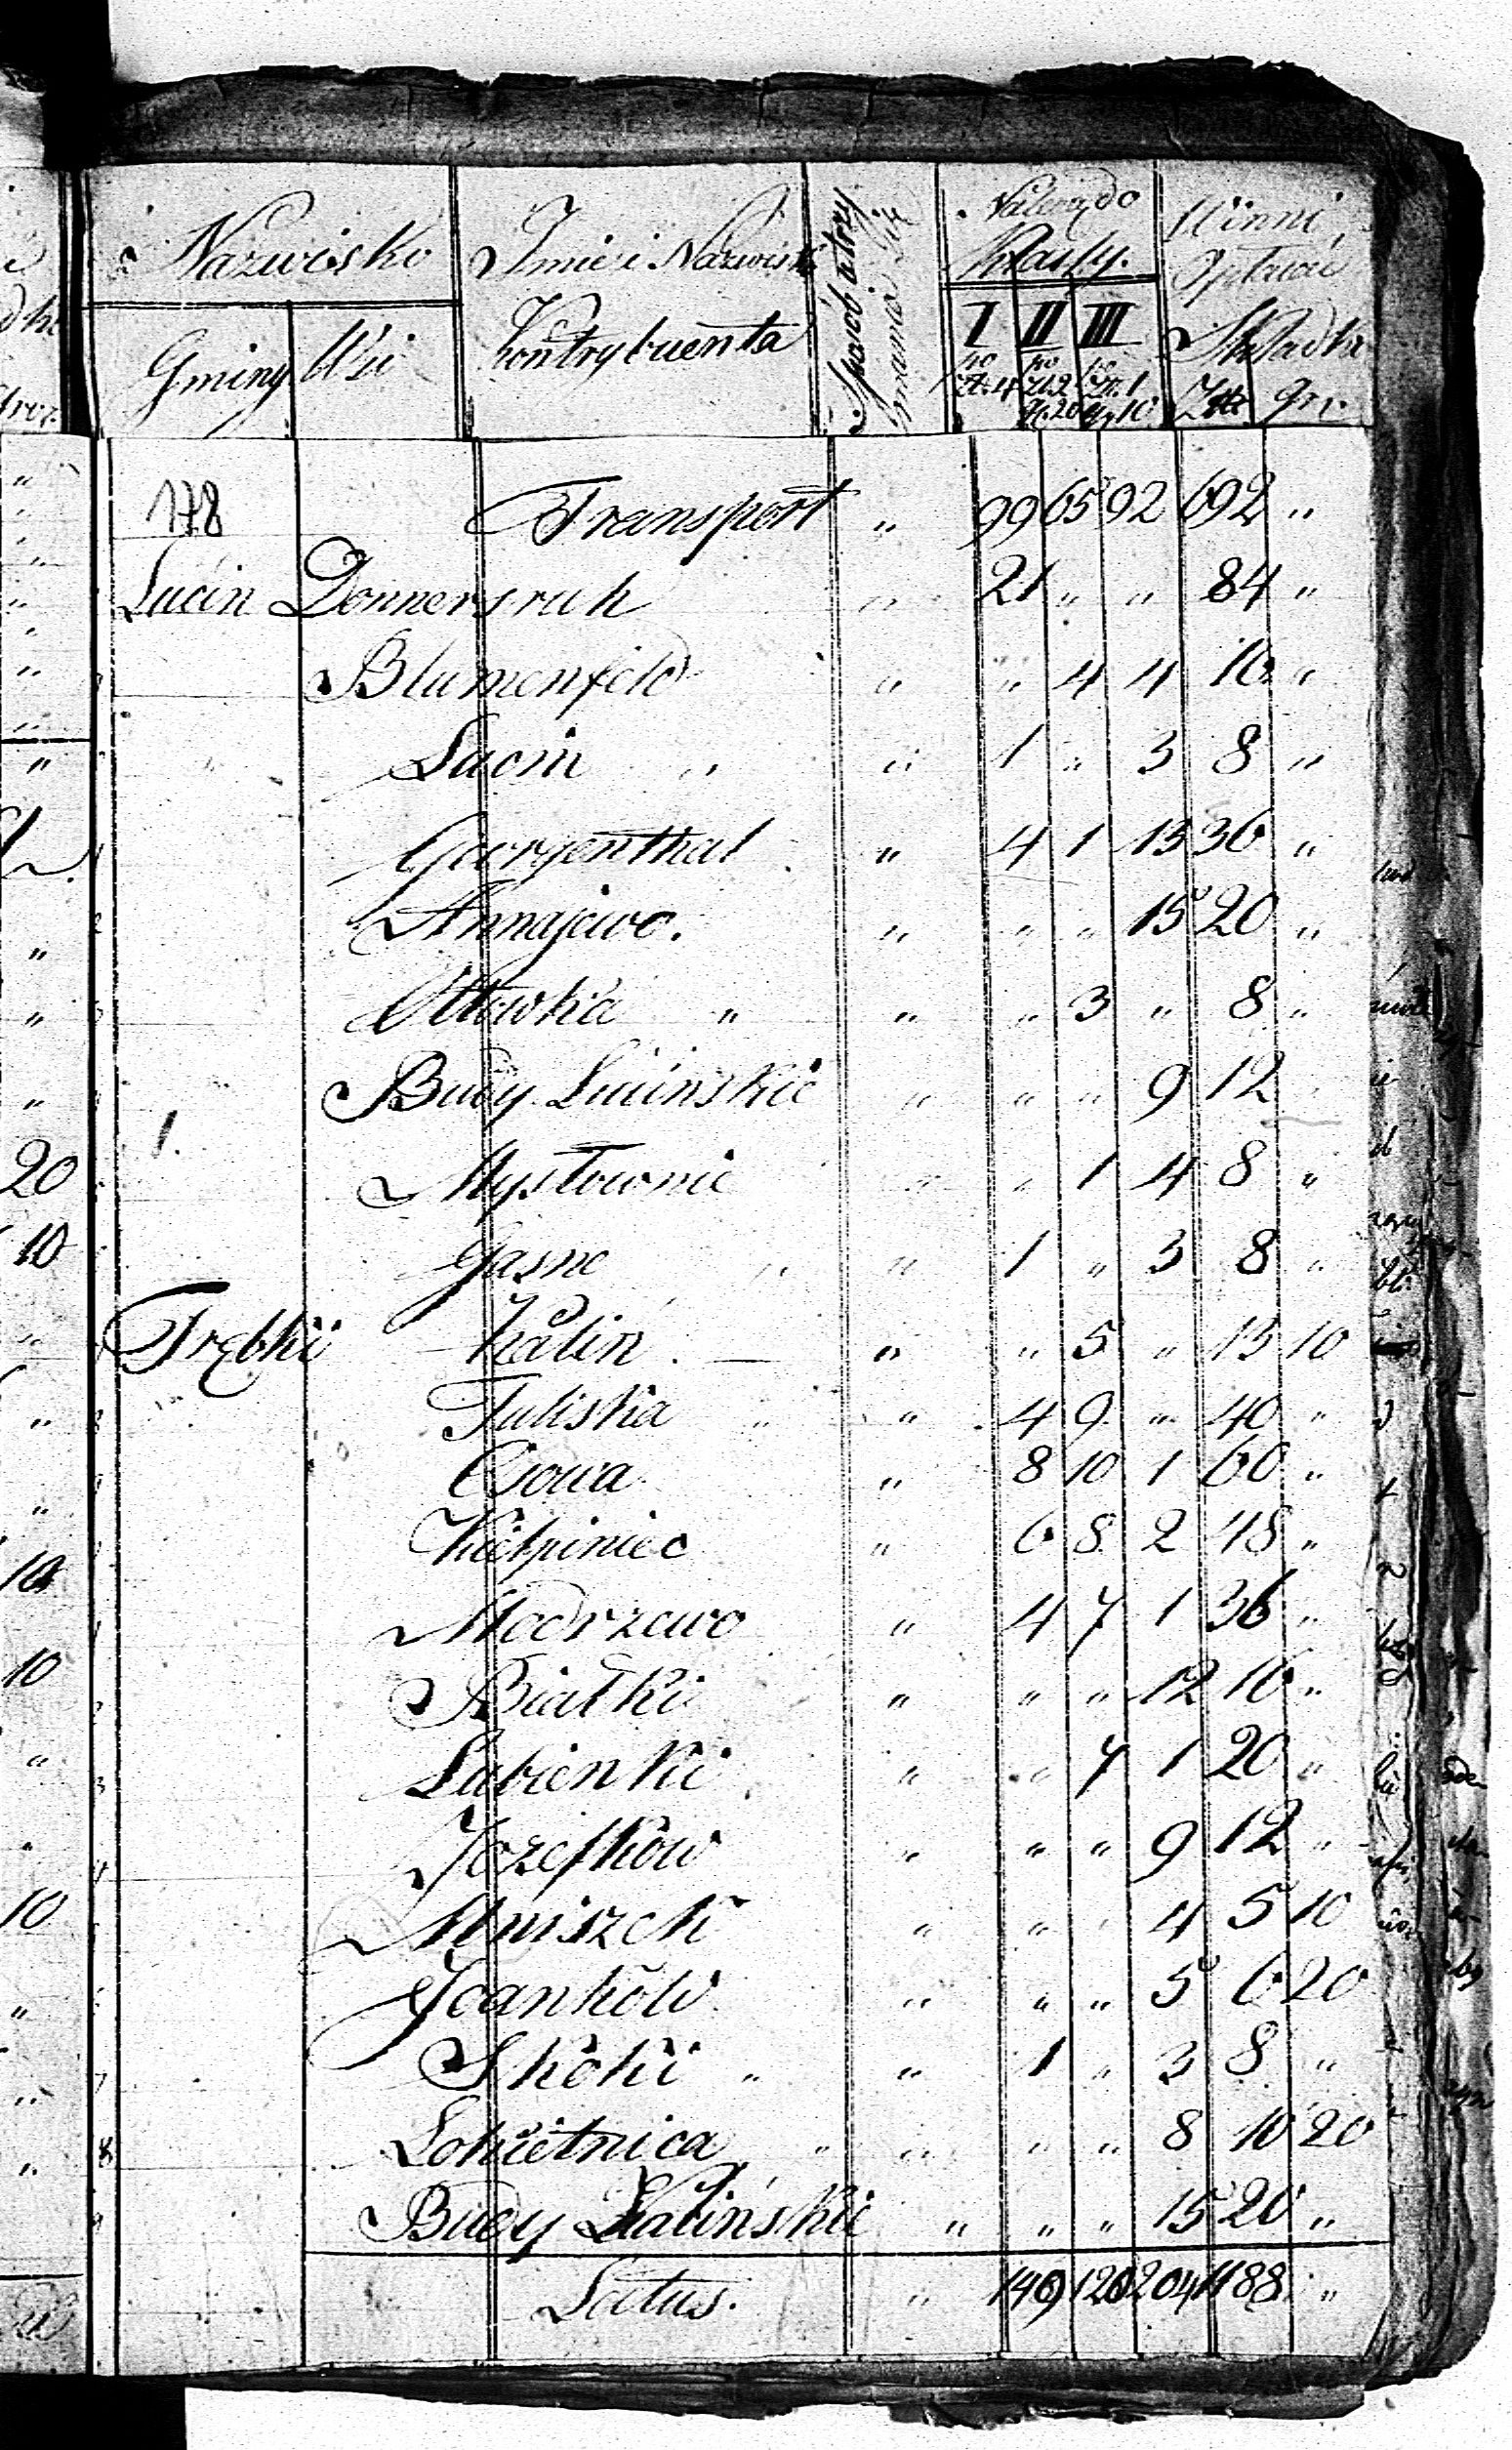 Nazwisko Imie i Nazwisko Sposób utrzymania się Należą do Klassy. Winni Opłacać
Gminy Wsi Kontrybuenta I II III Składki
po Zł. 4 po Zł. 2 gr. 20 po Zł. 1 gr 10 Zł gr.
178 Transport " 99 65 92 692 "
Lucin Donnersruh " 21 " " 84 "
Blumenfeld " " 4 4 16 "
Lucin " " 1 " 3 8 "
Georgenthal " 4 1 13 36 "
Annajewo. " " " 15 20 "
Ottowka " " " 3 " 8 "
Budy Lucinskie " " " 9 12
1. Mysłownie " " 1 4 8 "
Gasne " " 1 " 3 8 "
Trębki Kalin " " 5 " 13 10
Tuliska " " 4 9 " 40 "
Osowa " 8 10 1 60 "
Kiełpiniec " 6 8 2 48 "
Modrzewo " 4 7 1 36 "
Białki " " " 12 16 "
Lubienki " " 7 1 20 "
Jozefkow " " " 9 12 "
Mniszek " " " 4 5 10
Joankow " " " 5 6 20
Skoki " " 1 " 3 8 "
Lokietnica " " " " 8 10 20
Budy Kalinskie " " " 15 20 "
Latus. " 149 120 204 1188 "